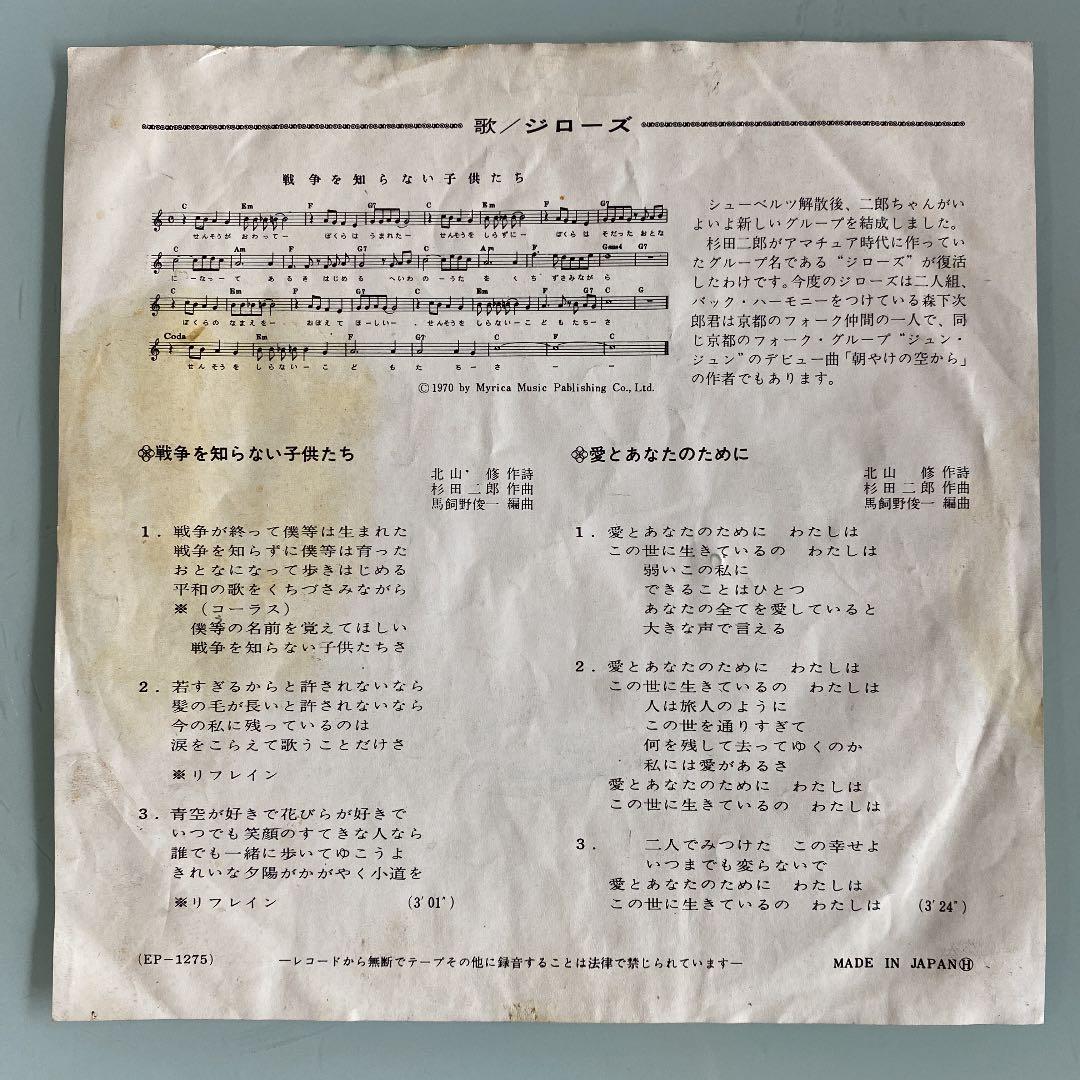 歌／ジローズ
戦争を知らない子供たち
C Em F G7 C Em F G7
せんそうが おわって― ぼくらは うまれた― せんそうを しらずに― ぼくらは そだった おとな
C Am F G7 C Am F G7
に―なっ―て あるき はじめる へいわの―うた を くち ずさみながら
C Em F G7 C Em F G7 C G
ぼくらの なまえを― おぼえて ほしい― せんそうを しらない―こ どもたち―さ
Coda C Em F G7 C F C
せんそうを しらない―こ ども たち―さ― ―
Ⓒ1970 by Myrica Music Pablishing Co., Ltd.
シューベルツ解散後、二郎ちゃんがい
よいよ新しいグループを結成しました。
杉田二郎がアマチュア時代に作ってい
たグループ名である“ジローズ”が復活
したわけです。今度のジローズは二人組、
バック・ハーモニーをつけている森下次
郎君は京都のフォーク仲間の一人で、同
じ京都のフォーク・グループ“ジュン・
ジュン”のデビュー曲「朝やけの空から」
の作者でもあります。
戦争を知らない子供たち
北山 修 作詩
杉田二郎 作曲
馬飼野俊一 編曲
1. 戦争が終って僕等は生まれた
戦争を知らずに僕等は育った
おとなになって歩きはじめる
平和の歌をくちづさみながら
※（コーラス）
僕等の名前を覚えてほしい
戦争を知らない子供たちさ
2. 若すぎるからと許されないなら
髪の毛が長いと許されないなら
今の私に残っているのは
涙をこらえて歌うことだけさ
※リフレイン
3. 青空が好きで花びらが好きで
いつでも笑顔のすてきな人なら
誰でも一緒に歩いてゆこうよ
きれいな夕陽がかがやく小道を
※リフレイン (3′01″)
愛とあなたのために
北山 修 作詩
杉田二郎 作曲
馬飼野俊一 編曲
1. 愛とあなたのために わたしは
この世に生きているの わたしは
弱いこの私に
できることはひとつ
あなたの全てを愛していると
大きな声で言える
2. 愛とあなたのために わたしは
この世に生きているの わたしは
人は旅人のように
この世を通りすぎて
何を残して去ってゆくのか
私には愛があるさ
愛とあなたのために わたしは
この世に生きているの わたしは
3. 二人でみつけた この幸せよ
いつまでも変らないで
愛とあなたのために わたしは
この世に生きているの わたしは (3′24″)
(EP－1275) ―レコードから無断でテープその他に録音することは法律で禁じられています― MADE IN JAPANⒽ